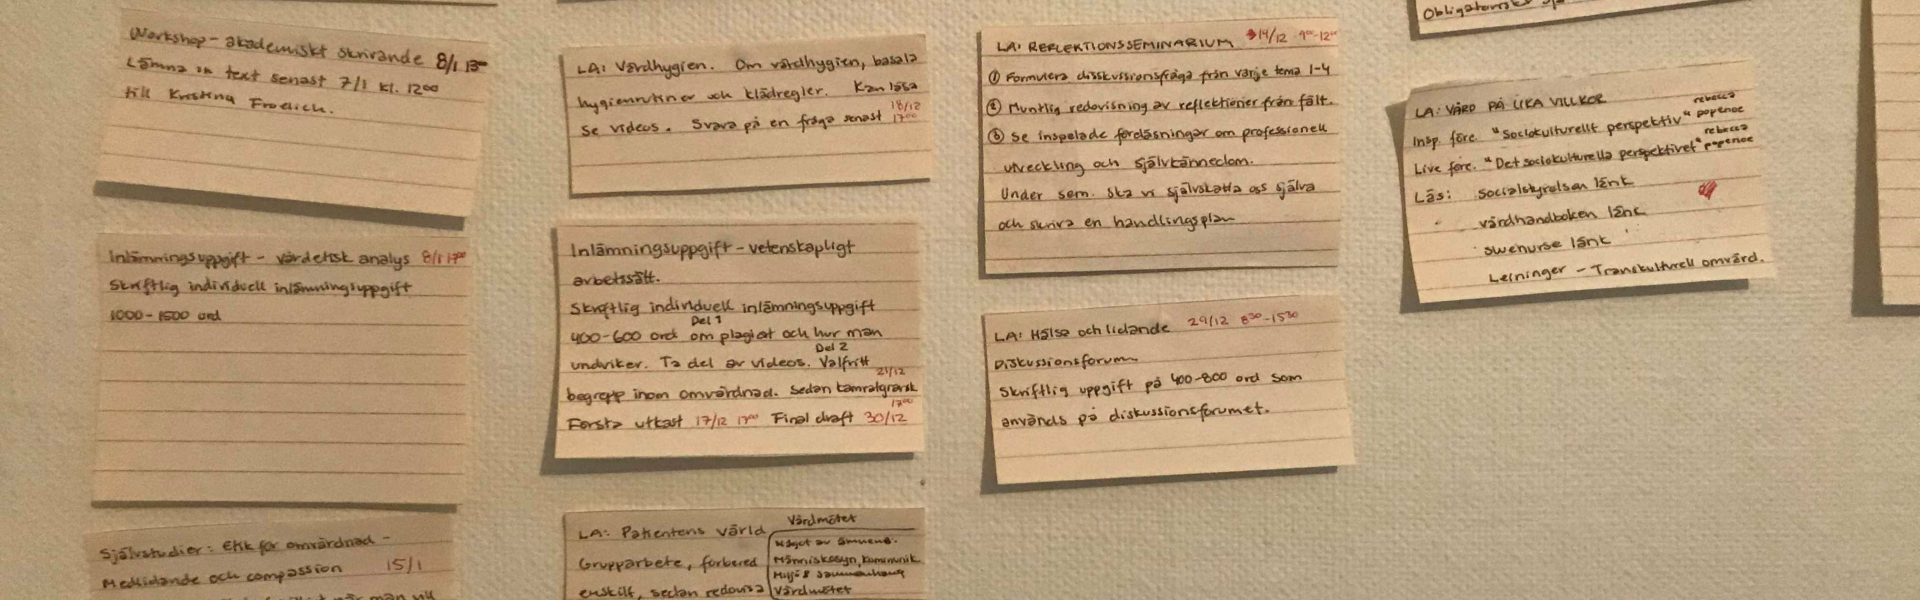 Workshop - akademiskt skrivande 8/1 13⁰⁰
Lämna in text senast 7/1 kl. 1200
till Kristina Froelich.
Inlämningsuppgift - vårdetisk analys 8/1 17⁰⁰
Skriftlig individuell inlämningsuppgift
1000-1500 ord
Självstudier: Etik för omvårdnad -
Medlidande och compassion 15/1
LA: Vårdhygien. Om vårdhygien, basala
hygienrutiner och klädregler. Kan läsa
Se videos. Svara på en fråga senast 18/12 17⁰⁰
Inlämningsuppgift - vetenskapligt
arbetssätt.
Skriftlig individuell inlämningsuppgift
Del 1
400-600 ord om plagiat och hur man
undviker. Ta del av videos. Del 2 Valfritt
begrepp inom omvårdnad. Sedan kamratgransk 21/12
Första utkast 17/12 17⁰⁰ Final draft 30/12 17⁰⁰
LA: Patientens värld
Grupparbete, förbered
enskilt, sedan redovisa
Vårdmötet
Något av ämnena:
Människosyn, kommunik
Miljö & sammanhang
Vårdmötet
LA: REFLEKTIONSSEMINARIUM 14/12 9⁰⁰-12⁰⁰
① Formulera disskussionsfråga från varje tema 1-4
② Muntlig redovisning av reflektioner från fält.
③ Se inspelade föreläsningar om professionell
utveckling och självkännedom.
Under sem. ska vi självskatta oss själva
och skriva en handlingsplan
LA: Hälsa och lidande 29/12 8³⁰-15³⁰
Diskussionsforum
Skriftlig uppgift på 400-800 ord som
används på diskussionsforumet.
Obligatoriskt
LA: VÅRD PÅ LIKA VILLKOR
Insp. före. "Sociokulturellt perspektiv" rebecca popenoe
Live före. "Det sociokulturella perspektivet" rebecca popenoe
Läs: Socialstyrelsen länk
vårdhandboken länk
swenurse länk
Leininger - Transkulturell omvård.